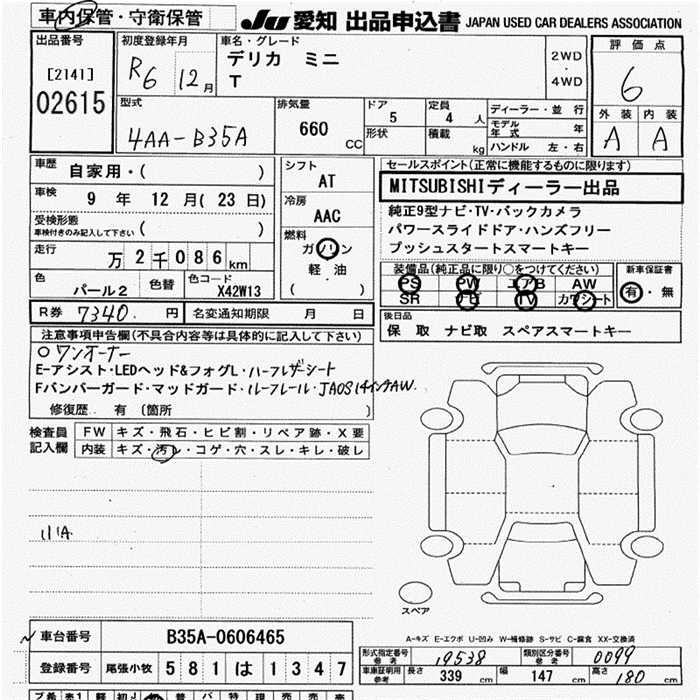 車内保管・守衛保管
JU 愛知 出品申込書 JAPAN USED CAR DEALERS ASSOCIATION
出品番号
[2141]
02615
初度登録年月
R6 12月
車名・グレード
デリカ ミニ
T
2WD
・
4WD
評価点
6
外装 内装
A A
型式
4AA-B35A
排気量
660
CC
ドア
5
定員
4 人
形状
積載
kg
ディーラー・並 行
モデル年式 年
ハンドル 左・右
車歴
自家用・( )
車検
9 年 12 月( 23 日)
受検形態
車検付きのみ記入して下さい ( )
走行
万 2 千 0 8 6 km
色
パール2
色替
色コード
X42W13
シフト
AT
冷房
AAC
燃料
ガソリン
軽・油
( )
セールスポイント(正常に機能するものに限ります)
MITSUBISHIディーラー出品
純正9型ナビ・TV・バックカメラ
パワースライドドア・ハンズフリー
プッシュスタートスマートキー
装備品(純正品に限り○をつけてください)
PS PW エアB AW
SR ナビ TV カワシート
新車保証書
有・無
R券 7340. 円
名変通知期限 月 日
後日品
保 取 ナビ取 スペアスマートキー
注意事項申告欄(不具合内容等は具体的に記入して下さい)
○ワンオーナー
E-アシスト・LEDヘッド&フォグL・ハーフレザーシート
Fバンパーガード・マッドガード・ルーフレール・JAOS14インチAW.
修復歴. 有 (箇所 )
検査員記入欄
FW キズ・飛石・ヒビ割・リペア跡・X要
内装 キズ・汚レ・コゲ・穴・スレ・キレ・破レ
スペア
A-キズ E-エクボ U-凹み W-補修跡 S-サビ C-腐食 XX-交換済
車台番号 B35A-0606465
登録番号 尾張小牧 5 8 1 は 1 3 4 7
形式指定番号 参考 19538
類別区分番号 参考 0099
車庫証明用 参考 長さ 339 cm 幅 147 cm 高さ 180 cm